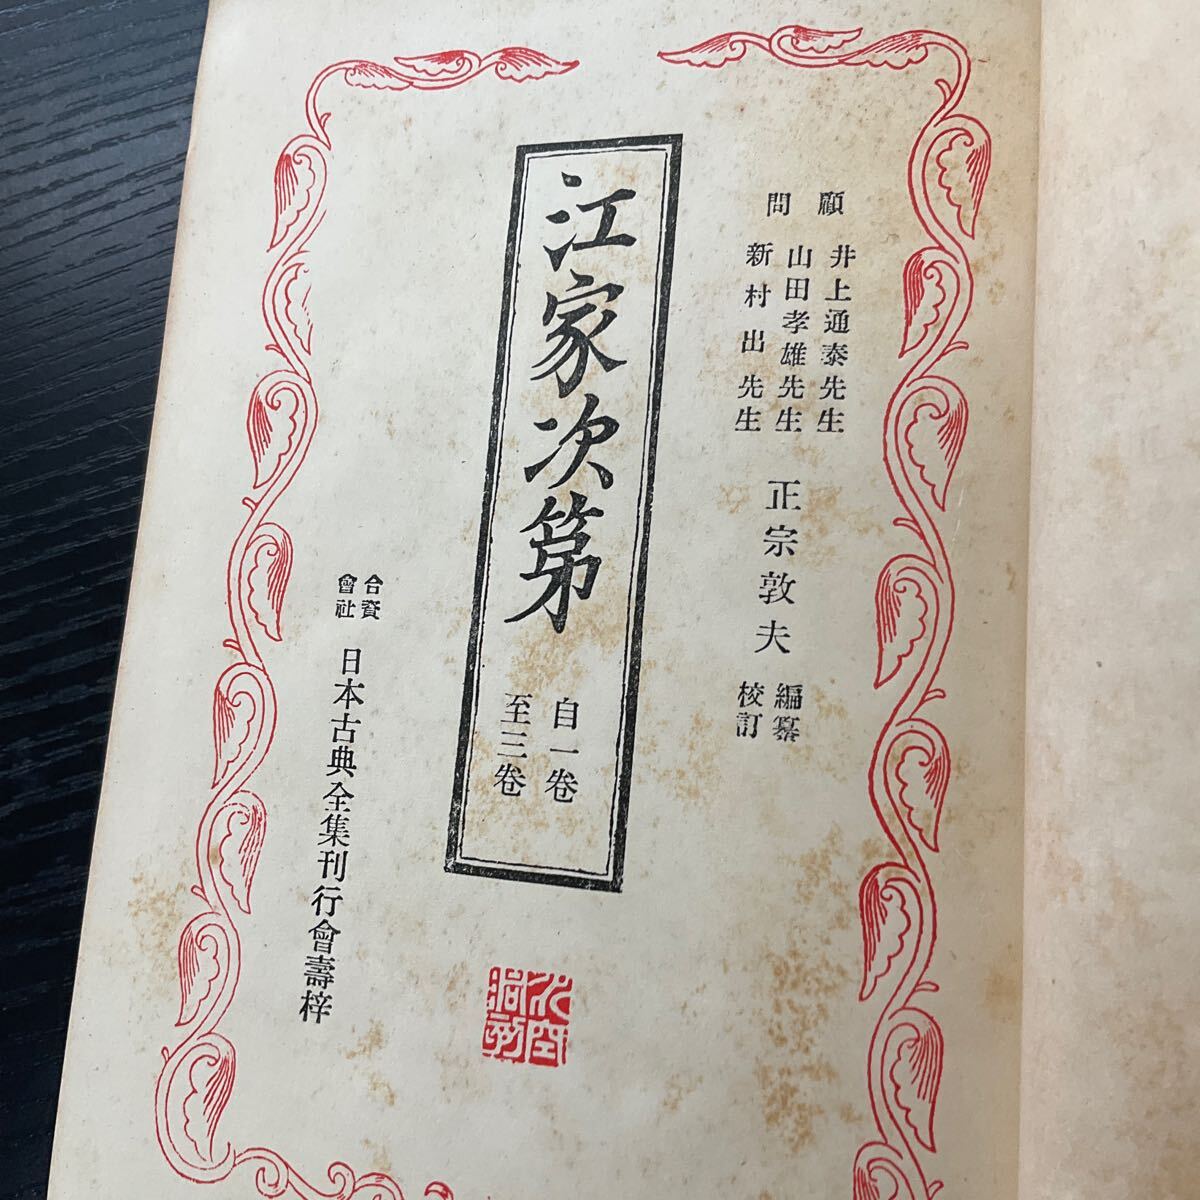 顧問
井上通泰先生
山田孝雄先生
新村出先生
正宗敦夫
編纂
校訂
江家次第
自一卷
至三卷
合資
會社
日本古典全集刊行會壽梓